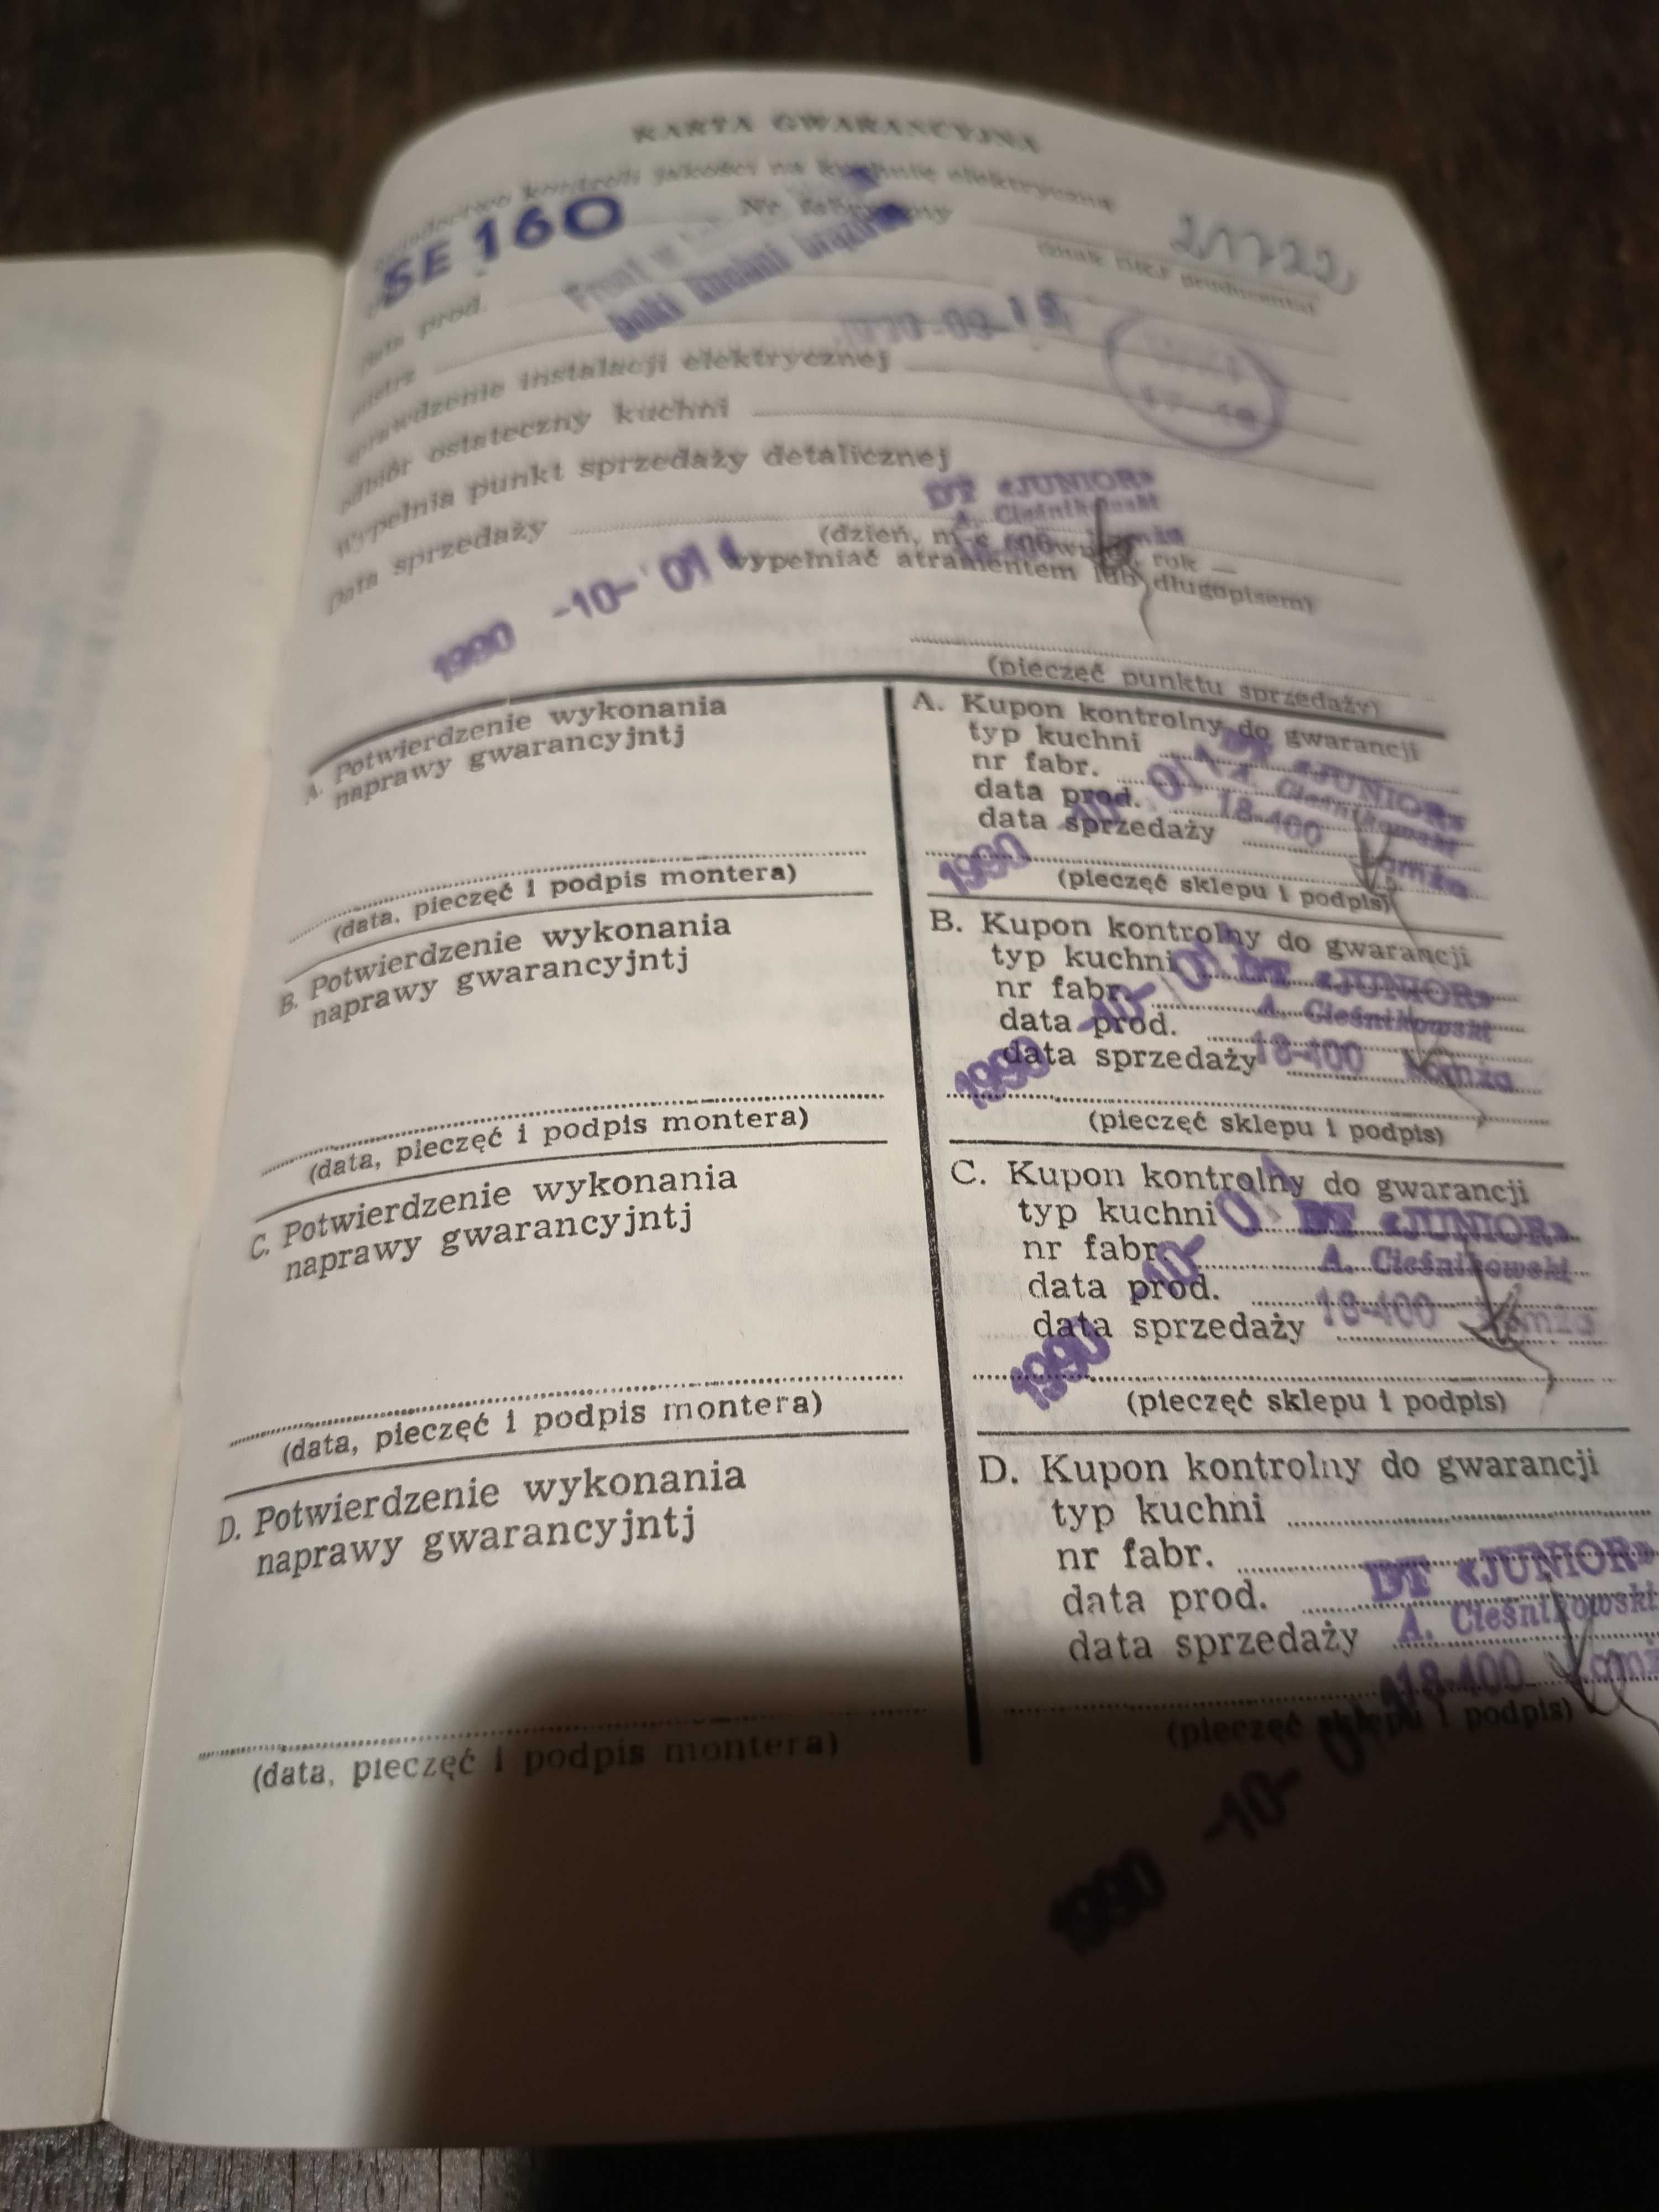 KARTA GWARANCYJNA
kontroli jakości na kuchnię elektryczną
SE 160 Nr fabryczny 21722
(znak producenta)
prod.
boki kuchni brązowe
-09-19
sprawdzenie instalacji elektrycznej
odbiór ostateczny kuchni
wypełnia punkt sprzedaży detalicznej
DT «JUNIOR»
A. Cieśnikowski
Data sprzedaży
(dzień, m-c rok —
wypełniać atramentem lub długopisem)
1990 -10- 01
(pieczęć punktu sprzedaży)
A. Potwierdzenie wykonania
naprawy gwarancyjntj
(data, pieczęć i podpis montera)
A. Kupon kontrolny do gwarancji
typ kuchni
nr fabr.
data prod.
data sprzedaży
DT «JUNIOR»
A. Cieśnikowski
18-400 Łomża
1990 -10- 01
(pieczęć sklepu i podpis)
B. Potwierdzenie wykonania
naprawy gwarancyjntj
(data, pieczęć i podpis montera)
B. Kupon kontrolny do gwarancji
typ kuchni
nr fabr.
data prod.
data sprzedaży
DT «JUNIOR»
A. Cieśnikowski
18-400 Łomża
1990 -10- 01
(pieczęć sklepu i podpis)
C. Potwierdzenie wykonania
naprawy gwarancyjntj
(data, pieczęć i podpis montera)
C. Kupon kontrolny do gwarancji
typ kuchni
nr fabr.
data prod.
data sprzedaży
DT «JUNIOR»
A. Cieśnikowski
18-400 Łomża
1990 -10- 01
(pieczęć sklepu i podpis)
D. Potwierdzenie wykonania
naprawy gwarancyjntj
(data, pieczęć i podpis montera)
D. Kupon kontrolny do gwarancji
typ kuchni
nr fabr.
data prod.
data sprzedaży
DT «JUNIOR»
A. Cieśnikowski
18-400 Łomża
(pieczęć sklepu i podpis)
1990 -10-